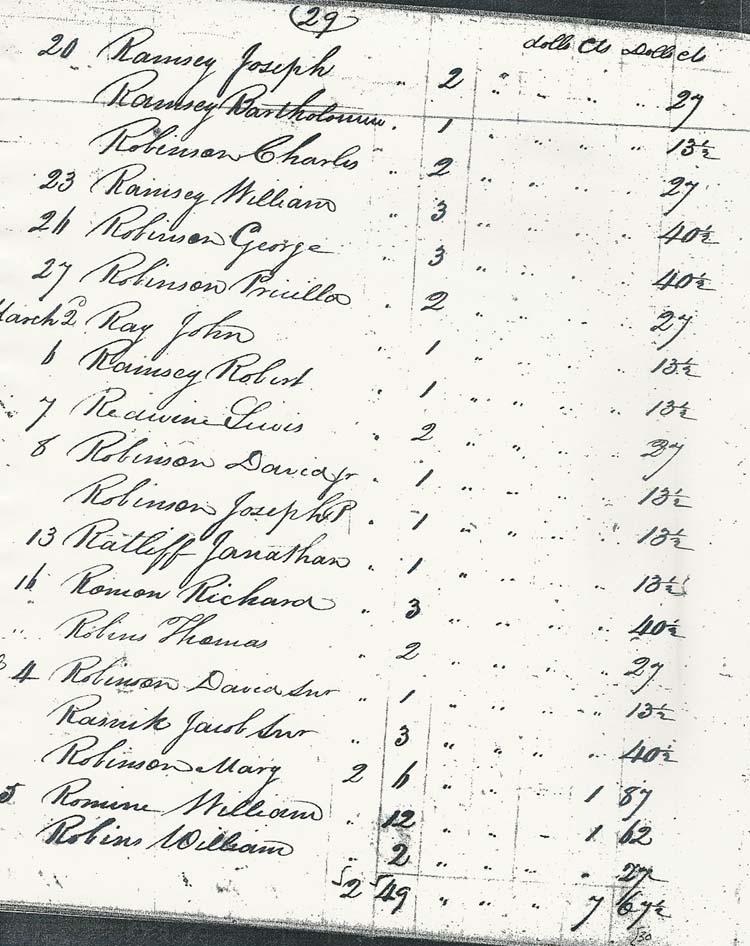 (29)
dolls Cts Dolls cts
20 Ramsey Joseph " 2 " " " " 27
Ramsey Bartholomew " 1 " " " " 13½
Robinson Charles " 2 " " " " 27
23 Ramsey William " 3 " " " " 40½
26 Robinson George " 3 " " " " 40½
27 Robinson Pricilla " 2 " " " " 27
March 2d Ray John " 1 " " " " 13½
6 Ramsey Robert " 1 " " " " 13½
7 Redwine Lewis " 2 " " " " 27
8 Robinson David Jr " 1 " " " " 13½
Robinson Joseph P " 1 " " " " 13½
13 Ratliff Janathan " 1 " " " " 13½
16 Romon Richard " 3 " " " " 40½
" Robins Thomas " 2 " " " " 27
4 Robinson David Snr " 1 " " " " 13½
Rasnik Jacob Snr " 3 " " " " 40½
Robinson Mary 2 6 " " " 1 87
5 Romine William " 12 " " " 1 62
Robins William " 2 " " " " 27
2 49 " " " 7 67½